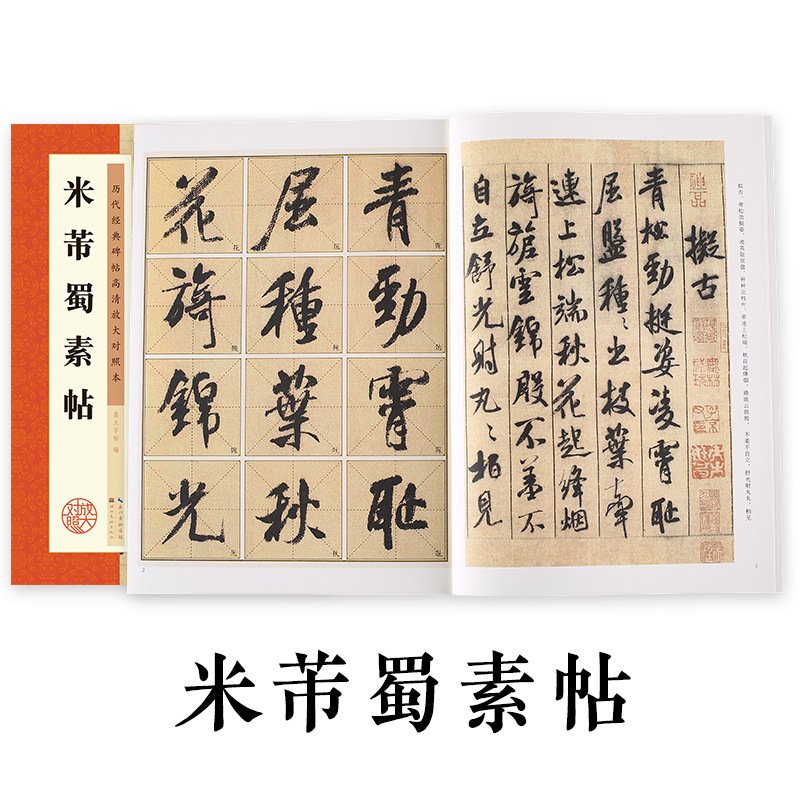 米芾蜀素帖
历代经典碑帖高清放大对照本
墨点字帖 编
放大
对照
青
勁
霄
耻
屈
種
葉
秋
花
旖
錦
光
2
擬古
青松勁挺姿凌霄耻
屈盤種〻出枝葉牽
連上松端秋花起絳烟
旖旎雲錦殷不羞不
自立舒光射丸〻柏見
1
米芾蜀素帖